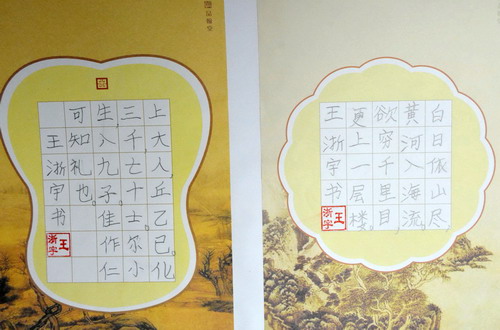 上大人，丘乙己。化
三千七十士，尔小
生，八九子，佳作仁
可知礼也。
王浙宇书
王浙宇
白日依山尽，
黄河入海流。
欲穷千里目，
更上一层楼。
王浙宇书
王浙宇